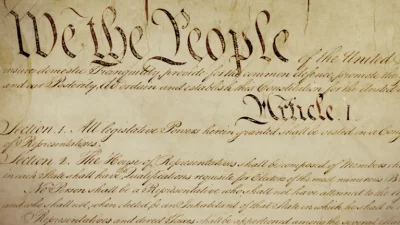 We the People
of the United
insure domestic Tranquility, provide for the common defence, promote the
and our Posterity, do ordain and establish this Constitution for the United
Article. I.
Section. 1. All legislative Powers herein granted shall be vested in a Cong
of Representatives.
Section. 2. The House of Representatives shall be composed of Members
in each State shall have Qualifications requisite for Electors of the most numerous B
No Person shall be a Representative who shall not have attained to the
and who shall not, when elected, be an Inhabitant of that State in which he shall
Representatives and direct Taxes shall be apportioned among the several